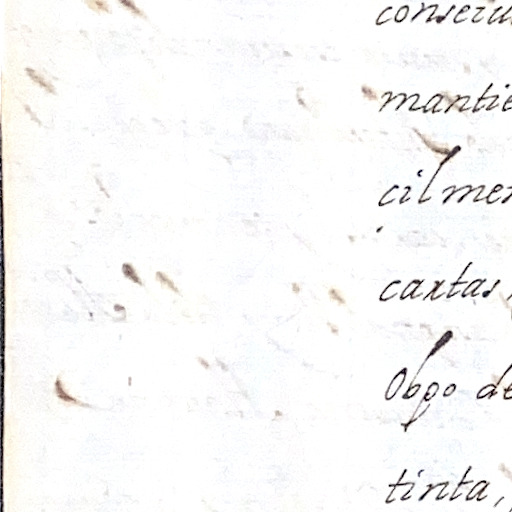 conseru
mantie
cilmen
cartas,
Obpo de
tinta,